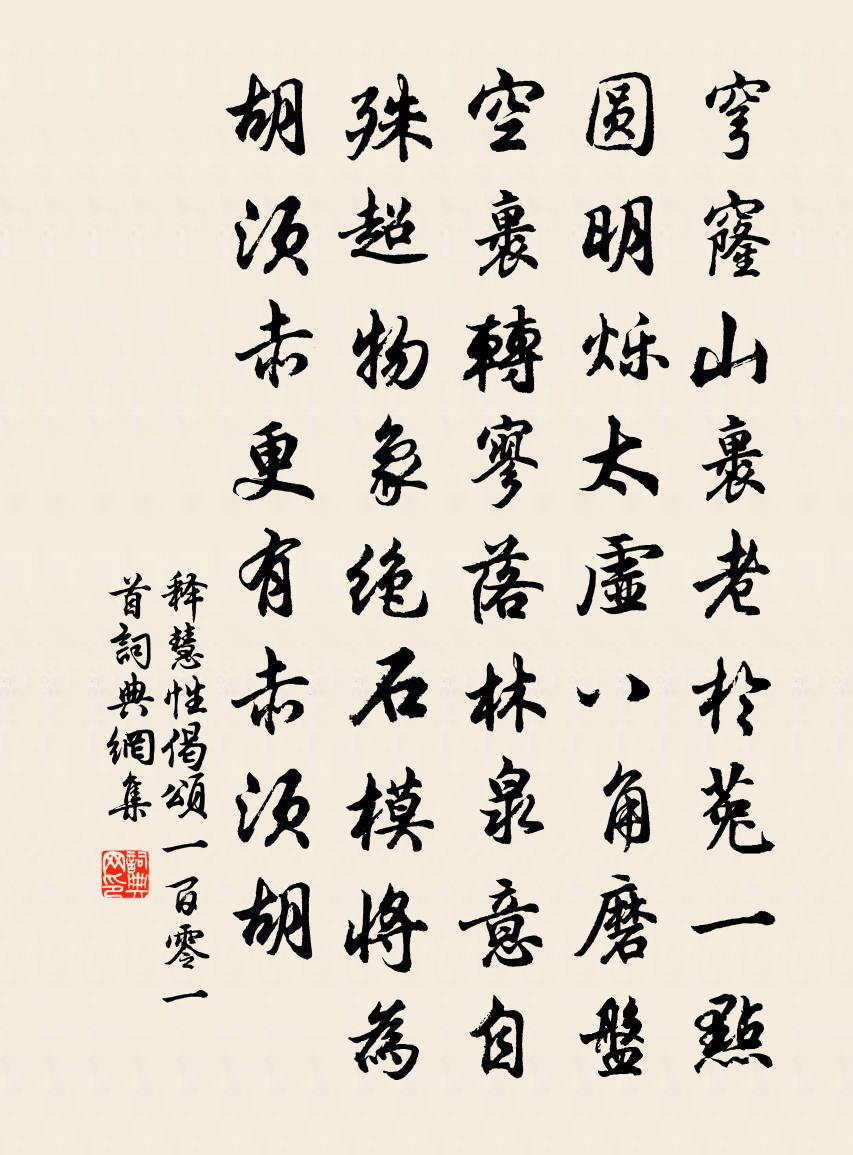 穹窿山裏老於菟一點
圆明烁太虛八角磨盤
空裏轉寥落林泉意自
殊超物象绝石模將為
胡须赤更有赤须胡
释慧性偈頌一百零一
首詞典網集
詞典网印